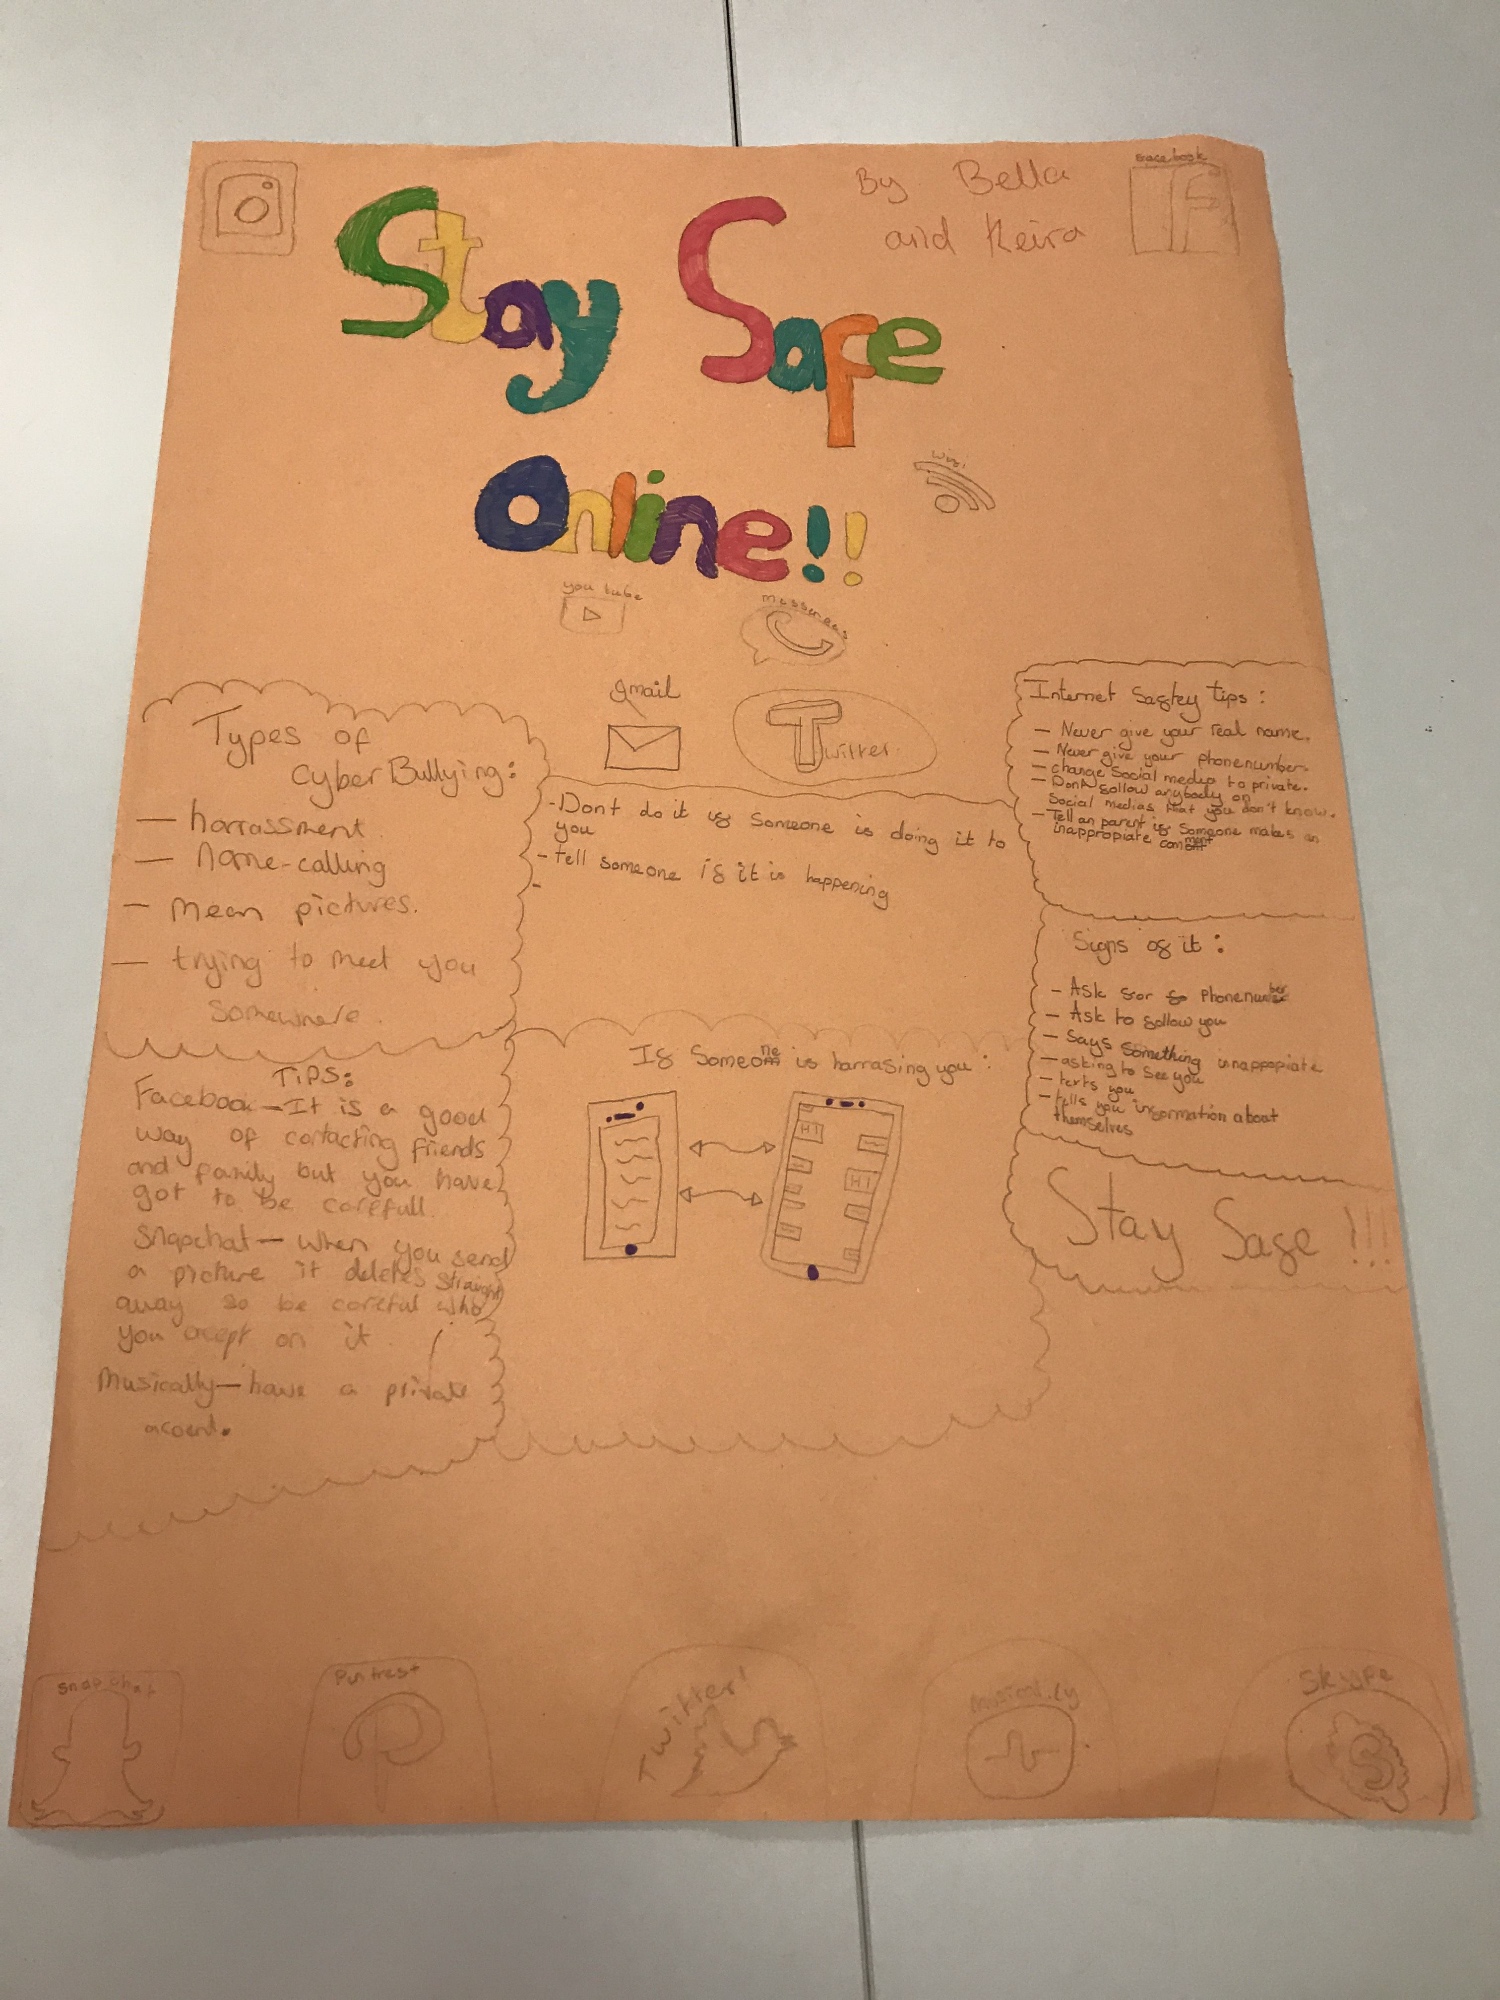 By Bella
and Keira
Facebook
Stay Safe
Online!!
wifi
you tube
messenges
gmail
Twitter.
Types of
CyberBullying:
— harrassment
— Name-calling
— Mean pictures.
— trying to meet you
somewhere.
-Dont do it if Someone is doing it to
you
- tell someone if it is happening
-
Internet Safety tips:
— Never give your real name.
— Never give your phonenumber.
— change Social medias to private.
— Dont follow anybody on
Social medias that you don't know.
— Tell an parent if Someone makes an
inappropiate comment
Signs of it:
— Ask for phonenumber
— Ask to follow you
— Says something innappopiate
— asking to see you
— texts you
— tells you information about
themselves
Stay Safe !!!
TiPS:
Facebook—It is a good
way of contacting friends
and family but you have
got to be carefull.
Snapchat— when you send
a picture it deletes straight
away so be careful who
you accept on it.
Musically—have a private
acount.
If Someone is harrasing you:
HI
HI
Snapchat
Pintrest
Twitter!
Musical.ly
Skype
S